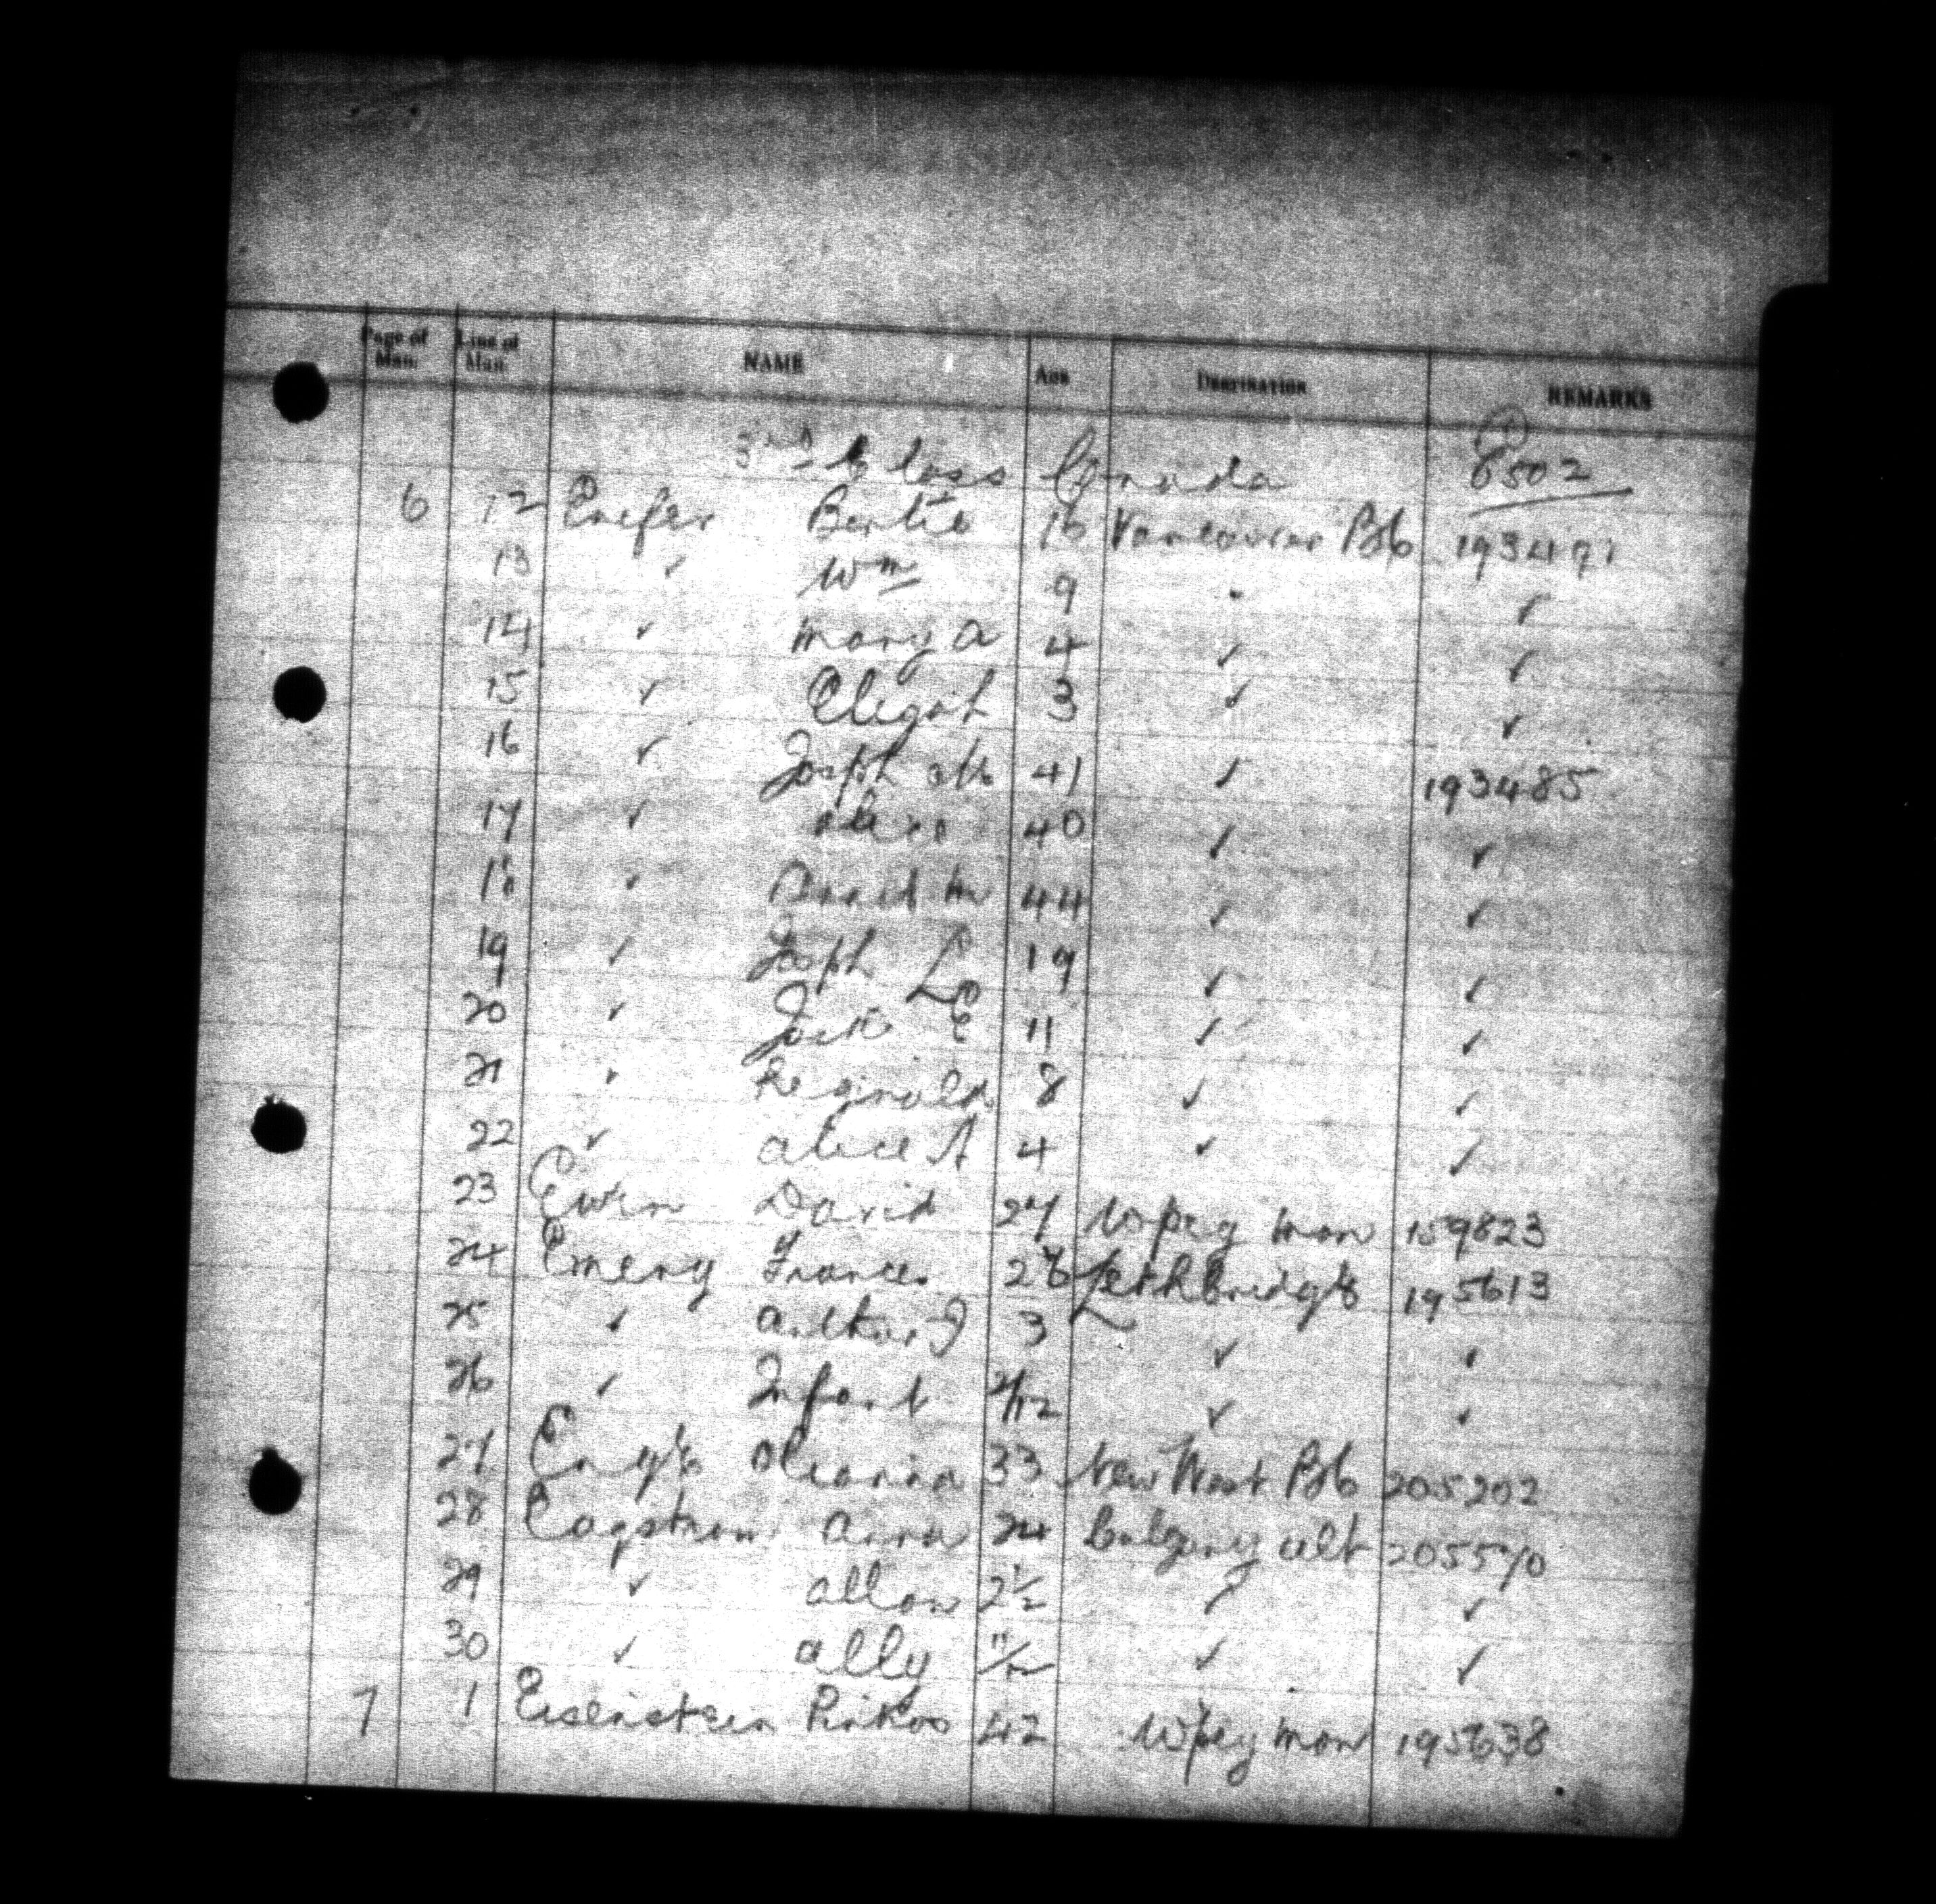 Page of Man. Line of Man. NAME AGE DESTINATION REMARKS
3rd Class Canada 6502
6 12 Enefer Bertie 16 Vancouver Bb 193471
13 ✓ Wm 9 " ✓
14 ✓ Mary A 4 ✓ ✓
15 ✓ Elijah 3 ✓ ✓
16 ✓ Joseph 41 ✓ 193485
17 ✓ 40 ✓ ✓
18 ✓ David 44 ✓ ✓
19 ✓ Joseph 19 ✓ ✓
20 ✓ Jack E 11 ✓ ✓
21 ✓ Reginald 8 ✓ ✓
22 ✓ Alice A 4 ✓ ✓
23 Ewen David 27 Wpeg Man 159823
24 Emery Frances Lethbridge 195613
25 ✓ Arthur J 3 ✓ ✓
26 ✓ Infant /12 ✓ ✓
27 33 New West Bb 205202
28 Eagstrom Anna 24 Calgary Alt 205570
29 ✓ Allan 2½ ✓ ✓
30 ✓ Ally 11/12 ✓ ✓
7 1 Eisenstein Pinkos 42 Wpeg Man 195638